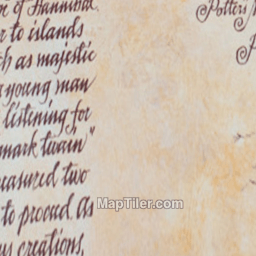 of Hannibal
to islands
as majestic
young man
listening for
mark twain"
measured two
to proceed As
creations.
Potters
MapTiler.com